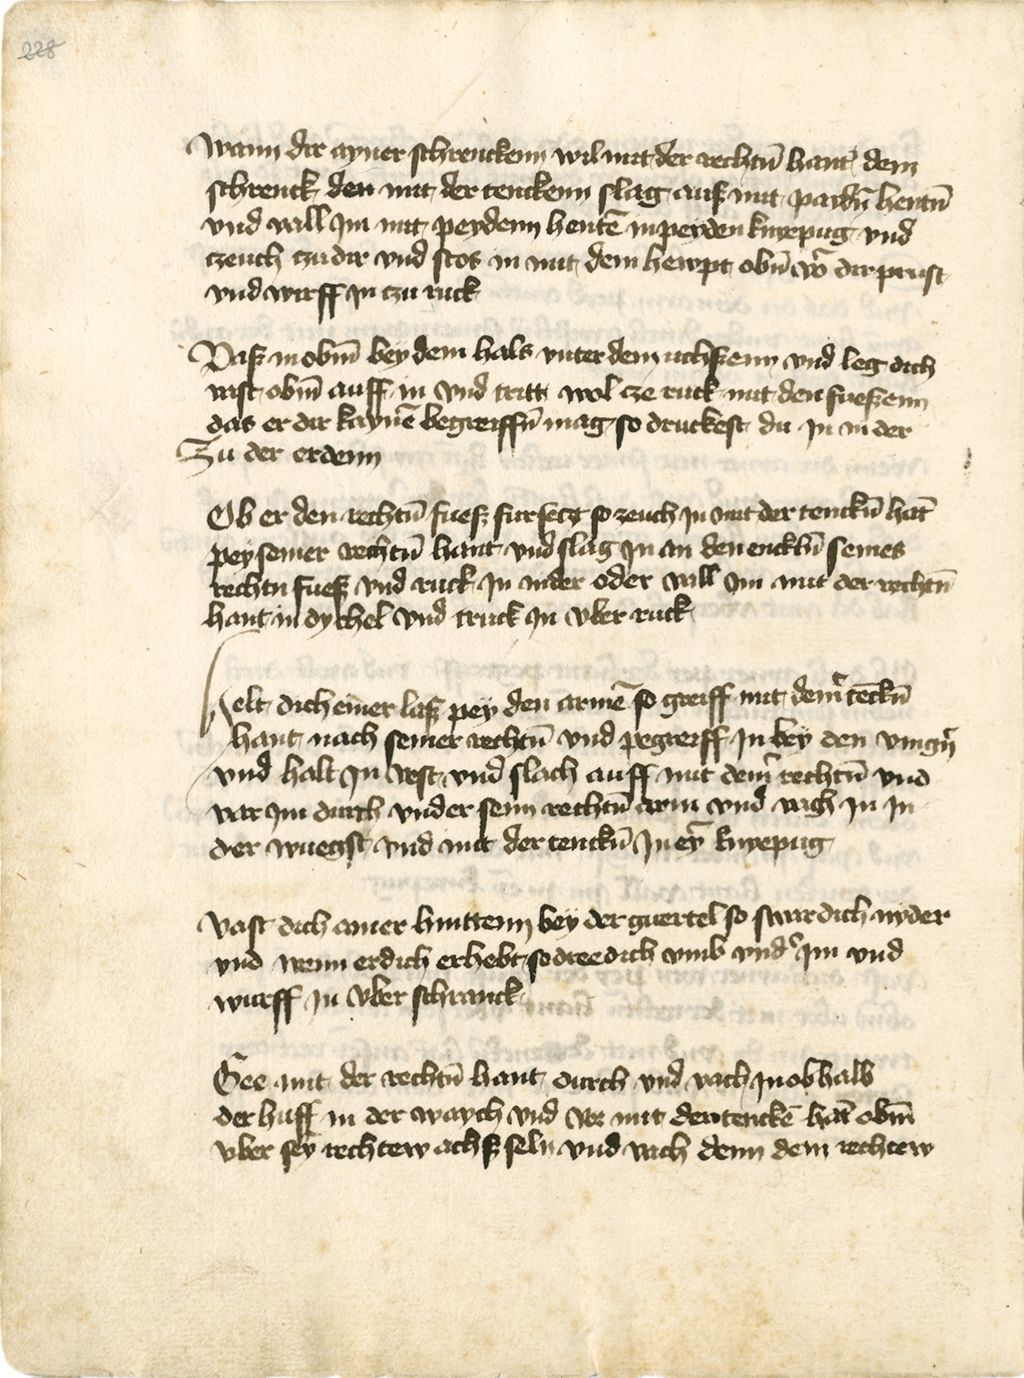 228
Wann dir ayner schrenckenn wil mit der rechtñ hant dem
schrenck den mit der tenckenn slag auß mit paydñ hentñ
vnd vall Im mit peydenn hentẽ in peyden knyepug vnd
czeuch czu dir vnd stos in mit dem hewpt obñ võ dir prust
vnd wirff In czu ruck
Vaß in obñ bey dem hals vnter dem uchssenn vnd leg dich
vast obñ auff in vnd tritt wol ze ruck mit den fuessenn
das er dir kaynẽ begreiffñ mag so druckest du In nider
Zu der erdenn
Ob er den rechtñ fuess fursetzt so zeuch In mit der tenckñ hãt
pey seiner rechtñ hant vnd slag In an den encklñ seines
rechtn fuess vnd ruck In nider oder vall Im mit der rechtñ
hant in dychel vnd truck In vber ruck
Helt dich einer lass pey den armẽ so greiff mit dem tẽckñ
hant nach seiner rechtñ vnd pegreiff In bey den vingñ
vnd halt In vest vnd slach auff mit dem rechtñ vnd
var Im durch vnder sein rechtñ arm vnd vach In In
der wuegst vnd mit der tenckñ In eỹ knyepug
Vast dich ainer hinttenn bey der guertel so swar dich nyder
vnd wenn er dich erhebt so dree dich vmb vnd Im vnd
wurff In vber schranck
Gee mit der rechtñ hant durch vnd vach In obhalb
der huff in der waych vnd var mit der tenckẽ hãt obñ
vber seỹ rechtew achssseln vnd vach denn dem rechtew